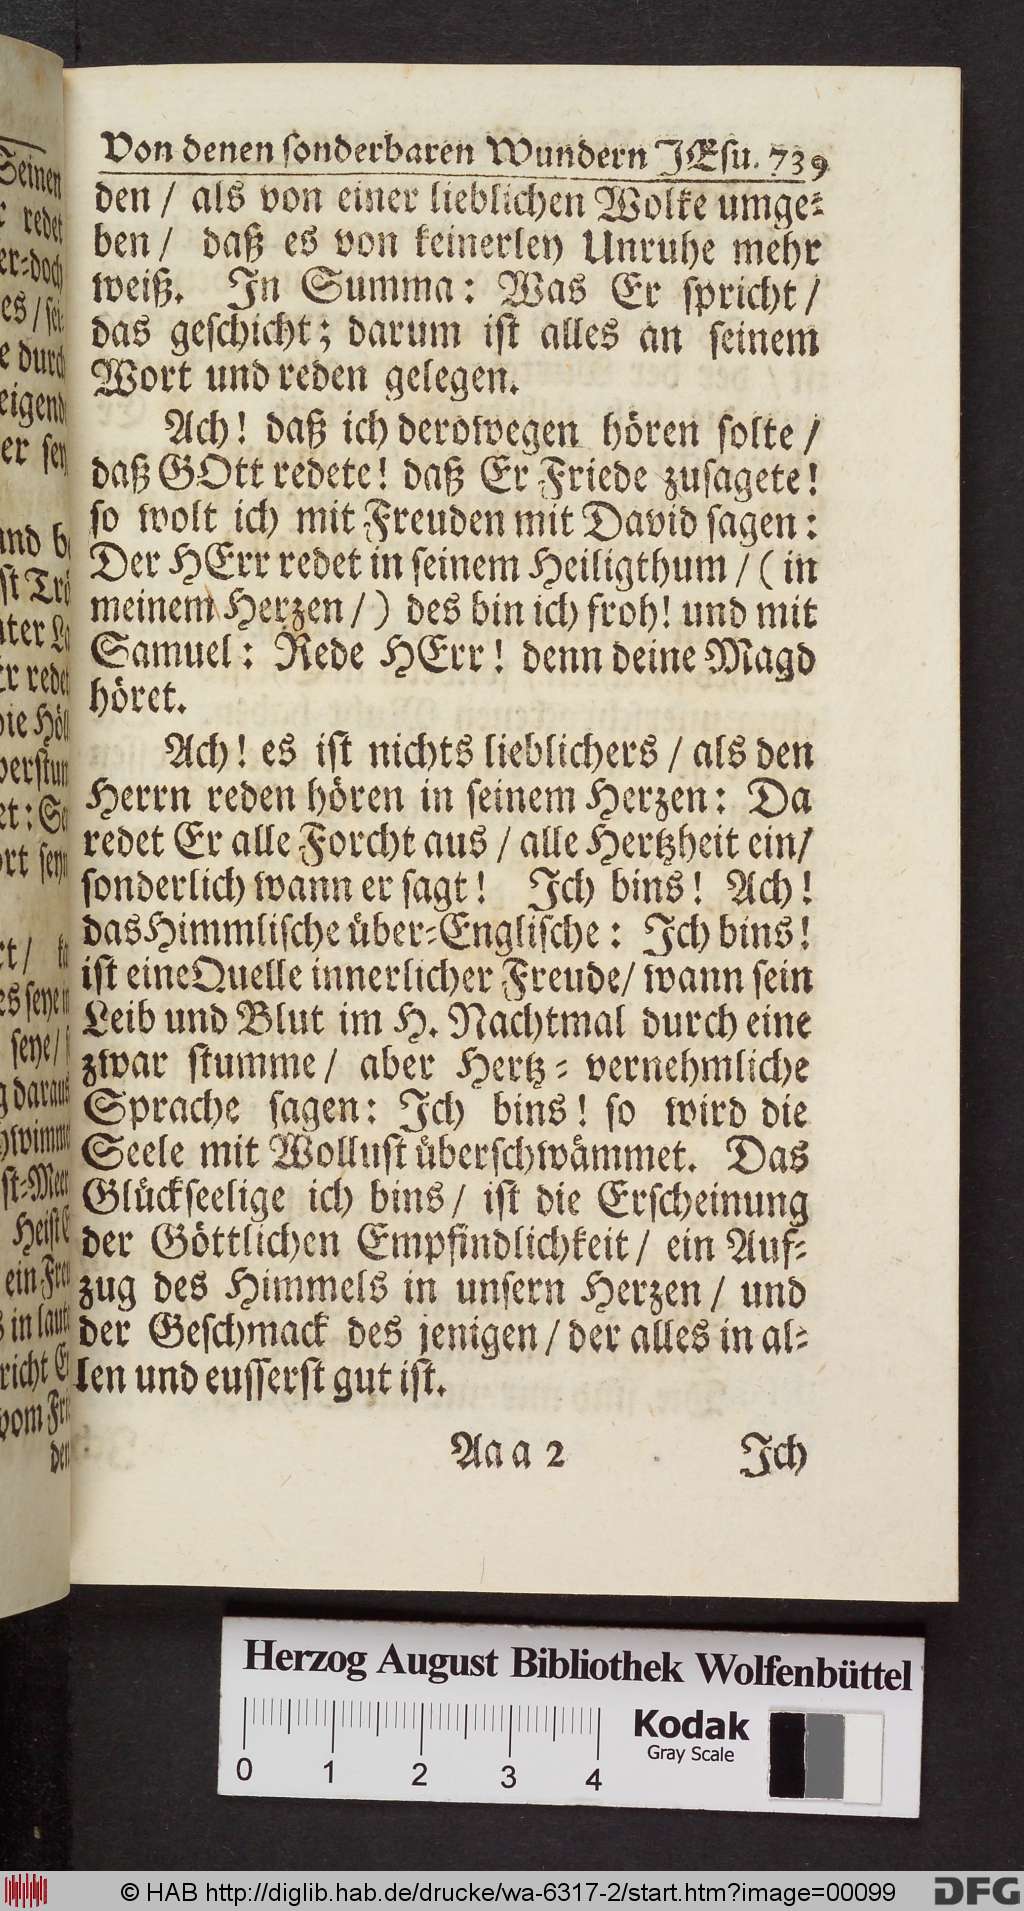 Von denen sonderbaren Wundern JEsu. 739
den / als von einer lieblichen Wolke umge-
ben / daß es von keinerley Unruhe mehr
weiß. In Summa: Was Er spricht /
das geschicht; darum ist alles an seinem
Wort und reden gelegen.
Ach! daß ich derowegen hören solte /
daß GOtt redete! daß Er Friede zusagete!
so wolt ich mit Freuden mit David sagen:
Der HErr redet in seinem Heiligthum / ( in
meinem Herzen / ) des bin ich froh! und mit
Samuel: Rede HErr! denn deine Magd
höret.
Ach! es ist nichts lieblichers / als den
Herrn reden hören in seinem Herzen: Da
redet Er alle Forcht aus / alle Hertzheit ein/
sonderlich wann er sagt! Ich bins! Ach!
das Himmlische über-Englische: Ich bins!
ist eine Quelle innerlicher Freude/ wann sein
Leib und Blut im H. Nachtmal durch eine
zwar stumme / aber Hertz-vernehmliche
Sprache sagen: Ich bins! so wird die
Seele mit Wollust überschwämmet. Das
Glückseelige ich bins / ist die Erscheinung
der Göttlichen Empfindlichkeit / ein Auf-
zug des Himmels in unsern Herzen / und
der Geschmack des jenigen / der alles in al-
len und eusserst gut ist.
Aa a 2 Ich
Seinen
redet
er-doch
es / sei-
e durch
eigend
er sey
und
st
redet
die Höl
ort seyn
es seye
seye /
g daraus
st-Meer
ein
in
richt
vom
den
Herzog August Bibliothek Wolfenbüttel
0 1 2 3 4
Kodak
Gray Scale
© HAB http://diglib.hab.de/drucke/wa-6317-2/start.htm?image=00099
DFG